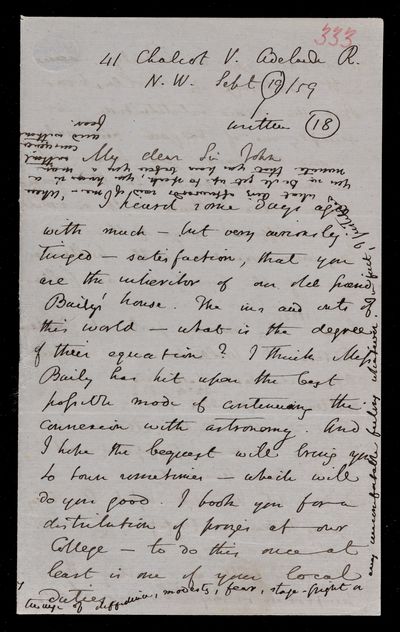 333
41 Chalcot V. Adelaide R.
N.W. Sept (19)/59
written (18)
My dear Sir John
I heard some days ago
with much — but very
tinged — satisfaction, that you
are the inheritor of our old friend
Baily's house. The ins and outs of
this world — what is the degree
of their equation? I think Miss
Baily has hit upon the best
possible mode of continuing the
connexion with astronomy. And
I hope the bequest will bring you
to town sometimes — which will
do you good. I book you for a
distribution of prizes at our
College — to do this once at
least is one of your local
duties.
tinge of diffidence, modesty, fear, stage-fright or
any uncomfortable feeling whatsoever — in fact,
you will be
what
afterwards said of me — 'When
you
get up to speak, you
that you have before you a
and without
fear.